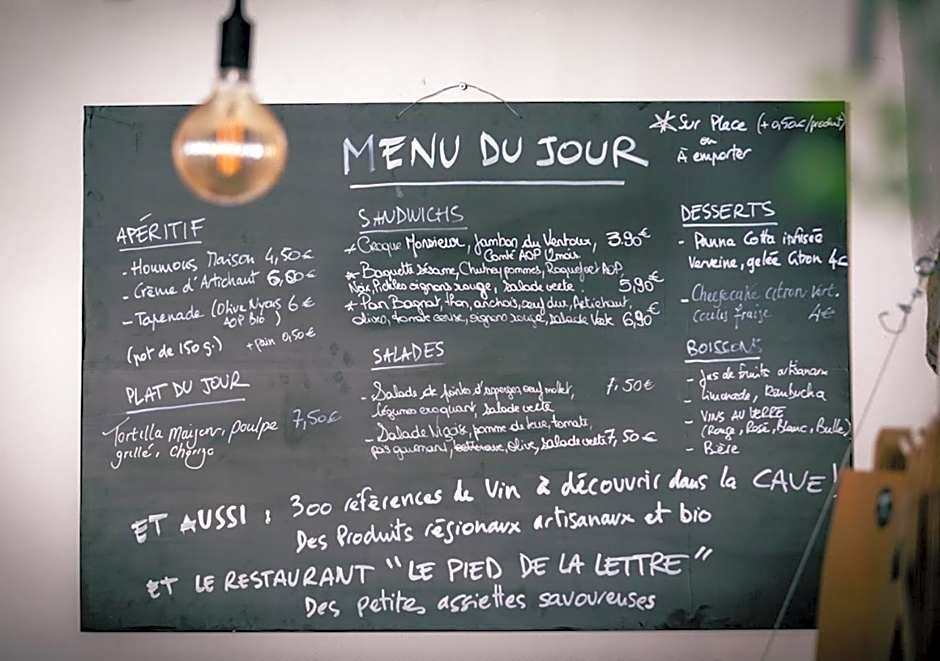 MENU DU JOUR
* Sur Place (+0,50€/produit)
ou
À emporter
APÉRITIF
- Houmous Maison 4,50€
- Crème d'Artichaut 6,50€
- Tapenade (Olive Nyons 6€
AOP bio)
(pot de 150g.) +pain 0,50€
PLAT DU JOUR
Tortilla Maison, poulpe 7,50€
grillé, Chorizo
SANDWICHS
* Croque Monsieur, Jambon du Ventoux, 3,90€
Comté AOP 12mois
* Baguette Sésame, Chutney pommes, Roquefort AOP,
Noix, Pickles oignons rouge, salade verte 5,90€
* Pan Bagnat, thon, anchois, oeuf dur, Artichaut,
olives, tomate, oignon rouge, salade Verte 6,90€
SALADES
- Salade de pointes d'asperges, oeuf mollet, 7,50€
légumes croquant, salade verte
- Salade Niçois, pomme de terre, tomate,
olive, salade verte 7,50€
DESSERTS
- Panna Cotta infusée
Verveine, gelée Citron 4€
- Cheesecake citron vert.
Coulis fraise 4€
BOISSONS
- Jus de fruits artisanaux
- Limonade, Kombucha
- VINS AU VERRE
(Rouge, Rosé, Blanc, Bulles)
- Bière
ET AUSSI : 300 références de Vin à découvrir dans la CAVE!
Des Produits régionaux artisanaux et bio
ET LE RESTAURANT "LE PIED DE LA LETTRE"
Des petites assiettes savoureuses